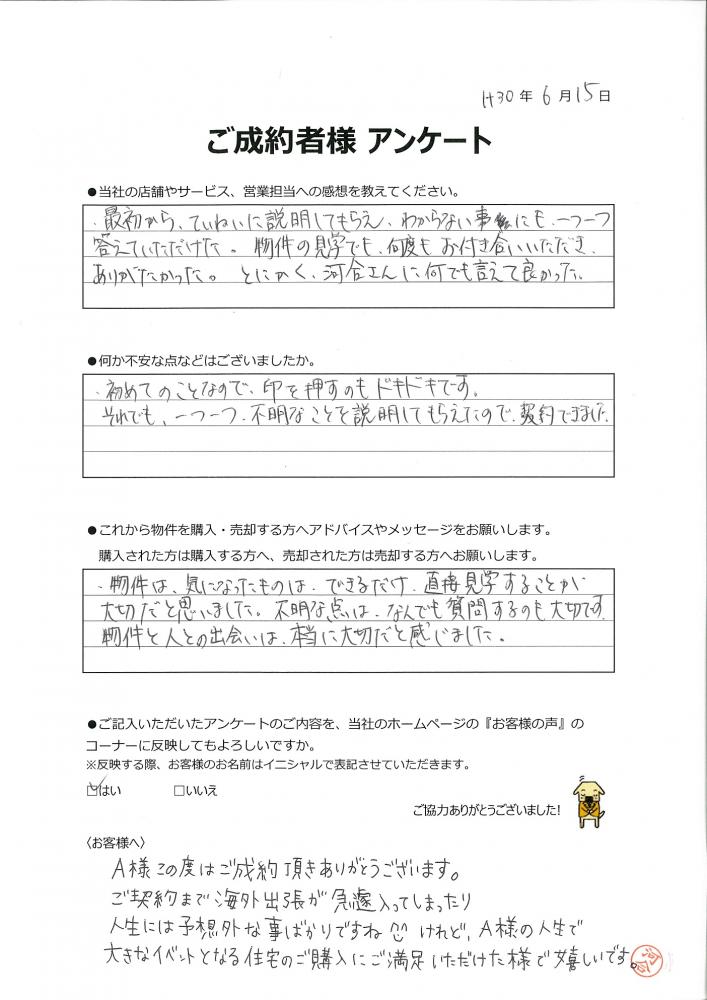 H30年 6月15日
ご成約者様 アンケート
●当社の店舗やサービス、営業担当への感想を教えてください。
・最初から、ていねいに説明してもらえ、わからない事にも、一つ一つ
答えていただけた。物件の見学でも、何度もお付き合いいただき、
ありがたかった。とにかく、河合さんに何でも言えて良かった。
●何か不安な点などはございましたか。
・初めてのことなので、印を押すのもドキドキです。
それでも、一つ一つ、不明なことを説明してもらえたので、契約できました。
●これから物件を購入・売却する方へアドバイスやメッセージをお願いします。
購入された方は購入する方へ、売却された方は売却する方へお願いします。
・物件は、気になったものは、できるだけ、直接見学することが
大切だと思いました。不明な点は、なんでも質問するのも大切です。
物件と人との出会いは、本当に大切だと感じました。
●ご記入いただいたアンケートのご内容を、当社のホームページの『お客様の声』の
コーナーに反映してもよろしいですか。
※反映する際、お客様のお名前はイニシャルで表記させていただきます。
☑はい □いいえ
ご協力ありがとうございました!
〈お客様へ〉
A様この度はご成約頂きありがとうございます。
ご契約まで海外出張が急遽入ってしまったり
人生には予想外な事ばかりですね けれど、A様の人生で
大きなイベントとなる住宅のご購入にご満足いただけた様で嬉しいです。
河合